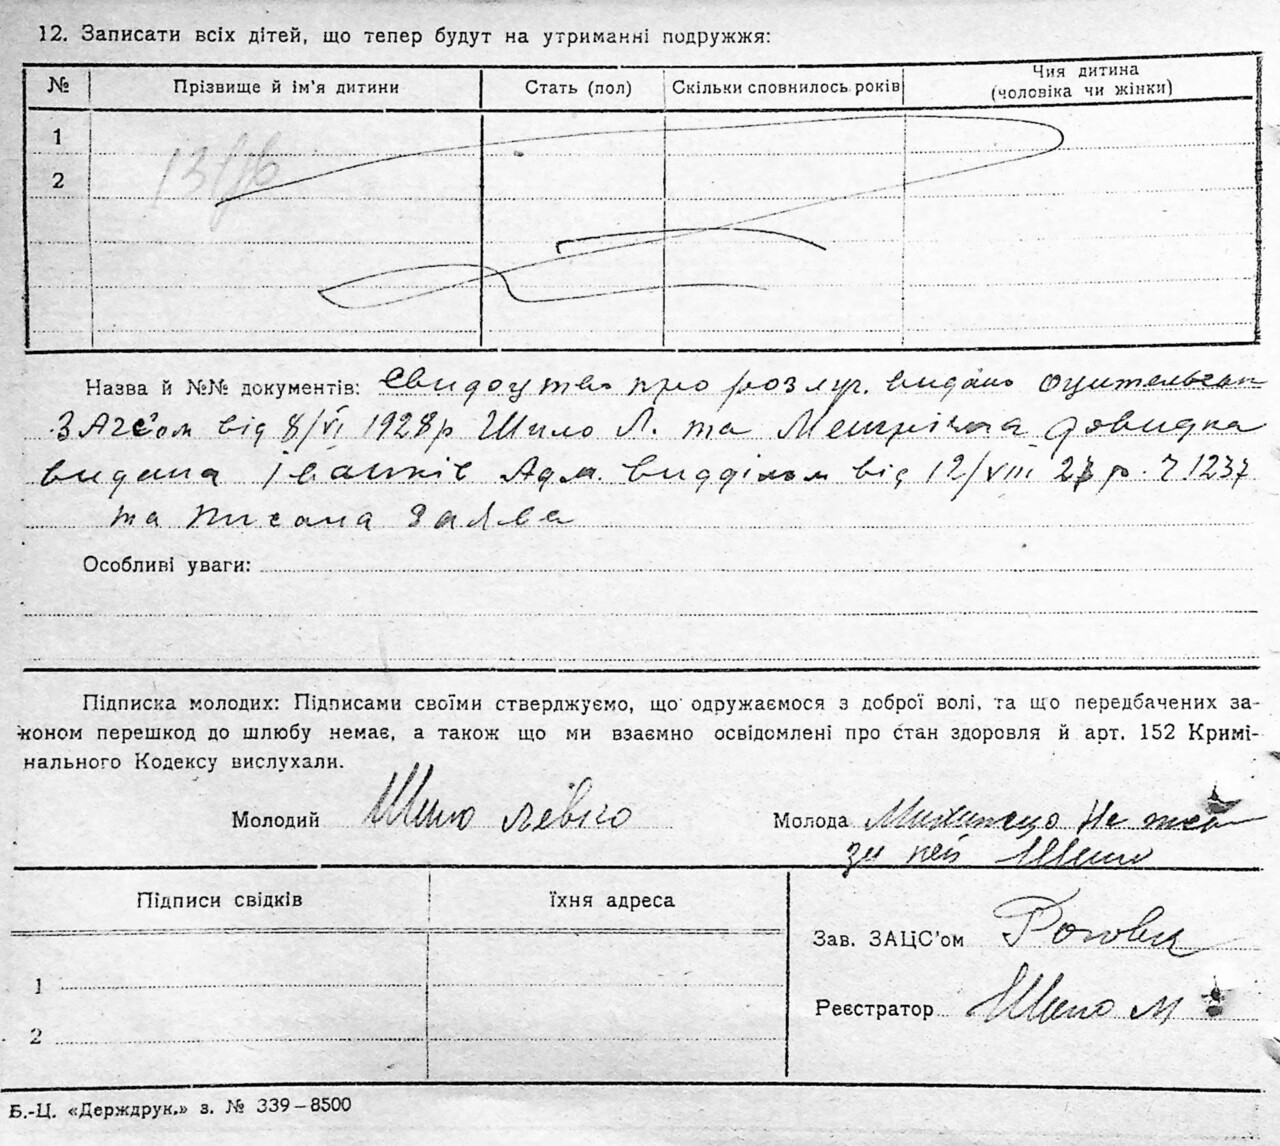 12. Записати всіх дітей, що тепер будут на утриманні подружжя:
№ Прізвище й ім'я дитини Стать (пол) Скільки сповнилось років Чия дитина (чоловіка чи жінки)
1
2
Назва й №№ документів: Свидоцтво про розлуч. видано
ЗАГС'ом від 8/VI 1928р Шило Л. та довидка
видана Іванків Адм. відділом від 12/VIII 27 р. ч 1237
та писана заява
Особливі уваги:
Підписка молодих: Підписами своїми стверджуємо, що одружаємося з доброї волі, та що передбачених за-
коном перешкод до шлюбу немає, а також що ми взаємно освідомлені про стан здоровля й арт. 152 Кримі-
нального Кодексу вислухали.
Молодий Шило Левко Молода
за неї Шило
Підписи свідків Їхня адреса
Зав. ЗАЦС'ом
1
Реєстратор Шило М
2
Б.-Ц. «Держдрук.» з. № 339–8500